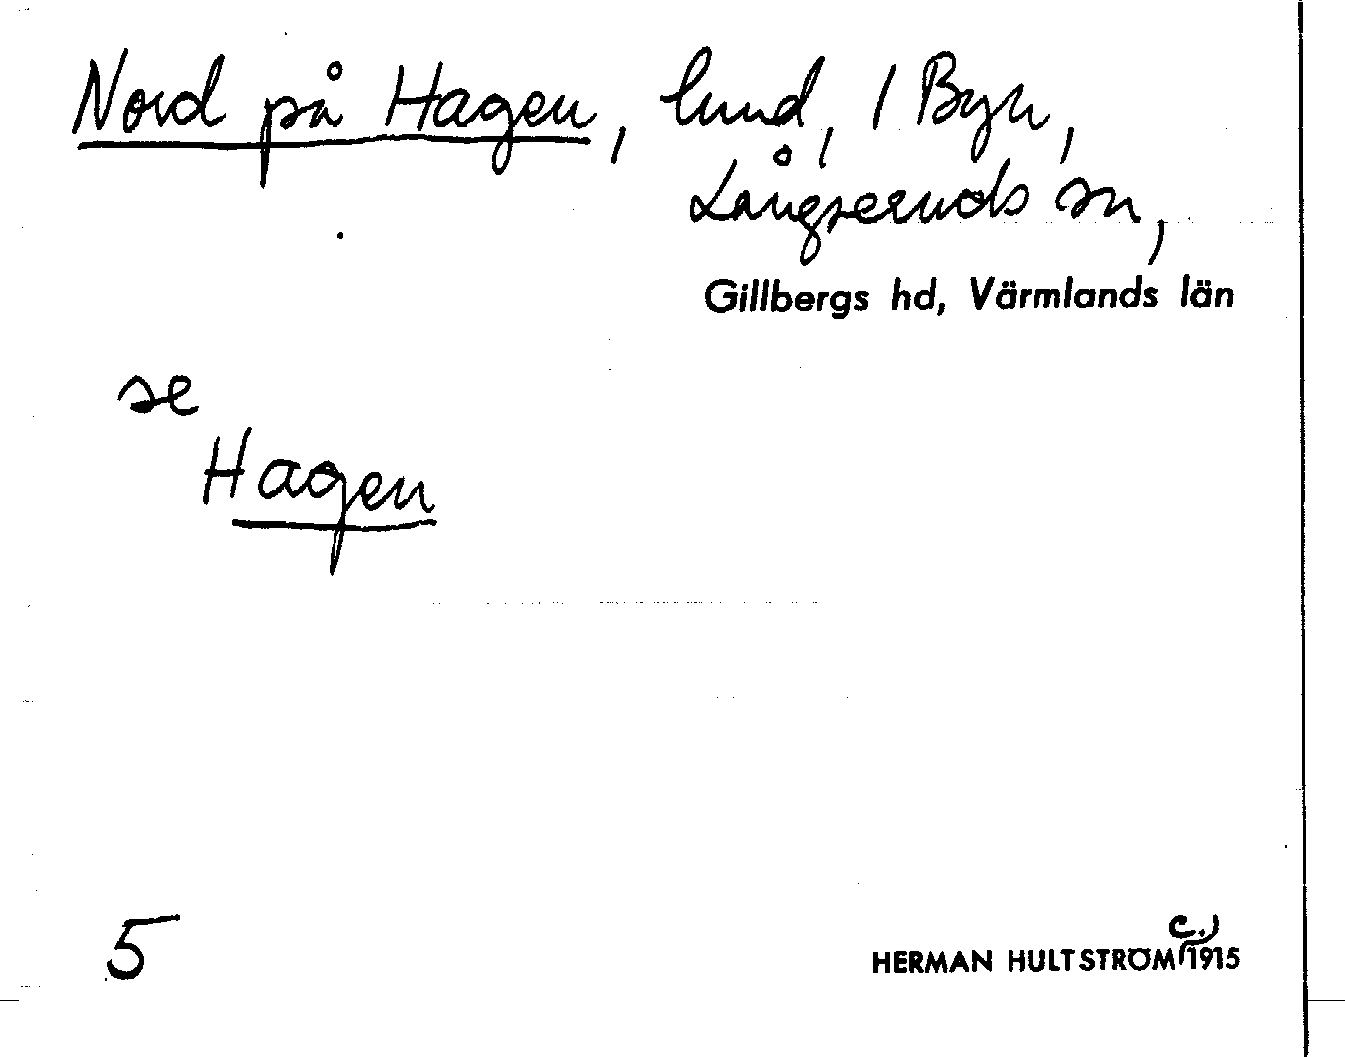 Nord på Hagen, lund, 1 Byn,
Långseruds sn,
Gillbergs hd, Värmlands län
se
Hagen
5
c.
HERMAN HULTSTRÖM 1915